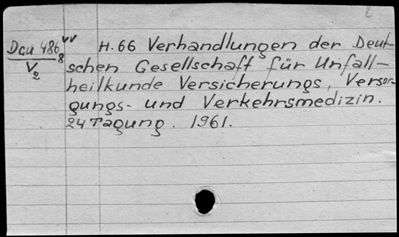 Dau 486 8 H. 66 Verhandlungen der Deut-
V2 schen Gesellschaft für Unfall-
heilkunde Versicherungs, Versor-
gungs- und Verkehrsmedizin.
24 Tagung. 1961.